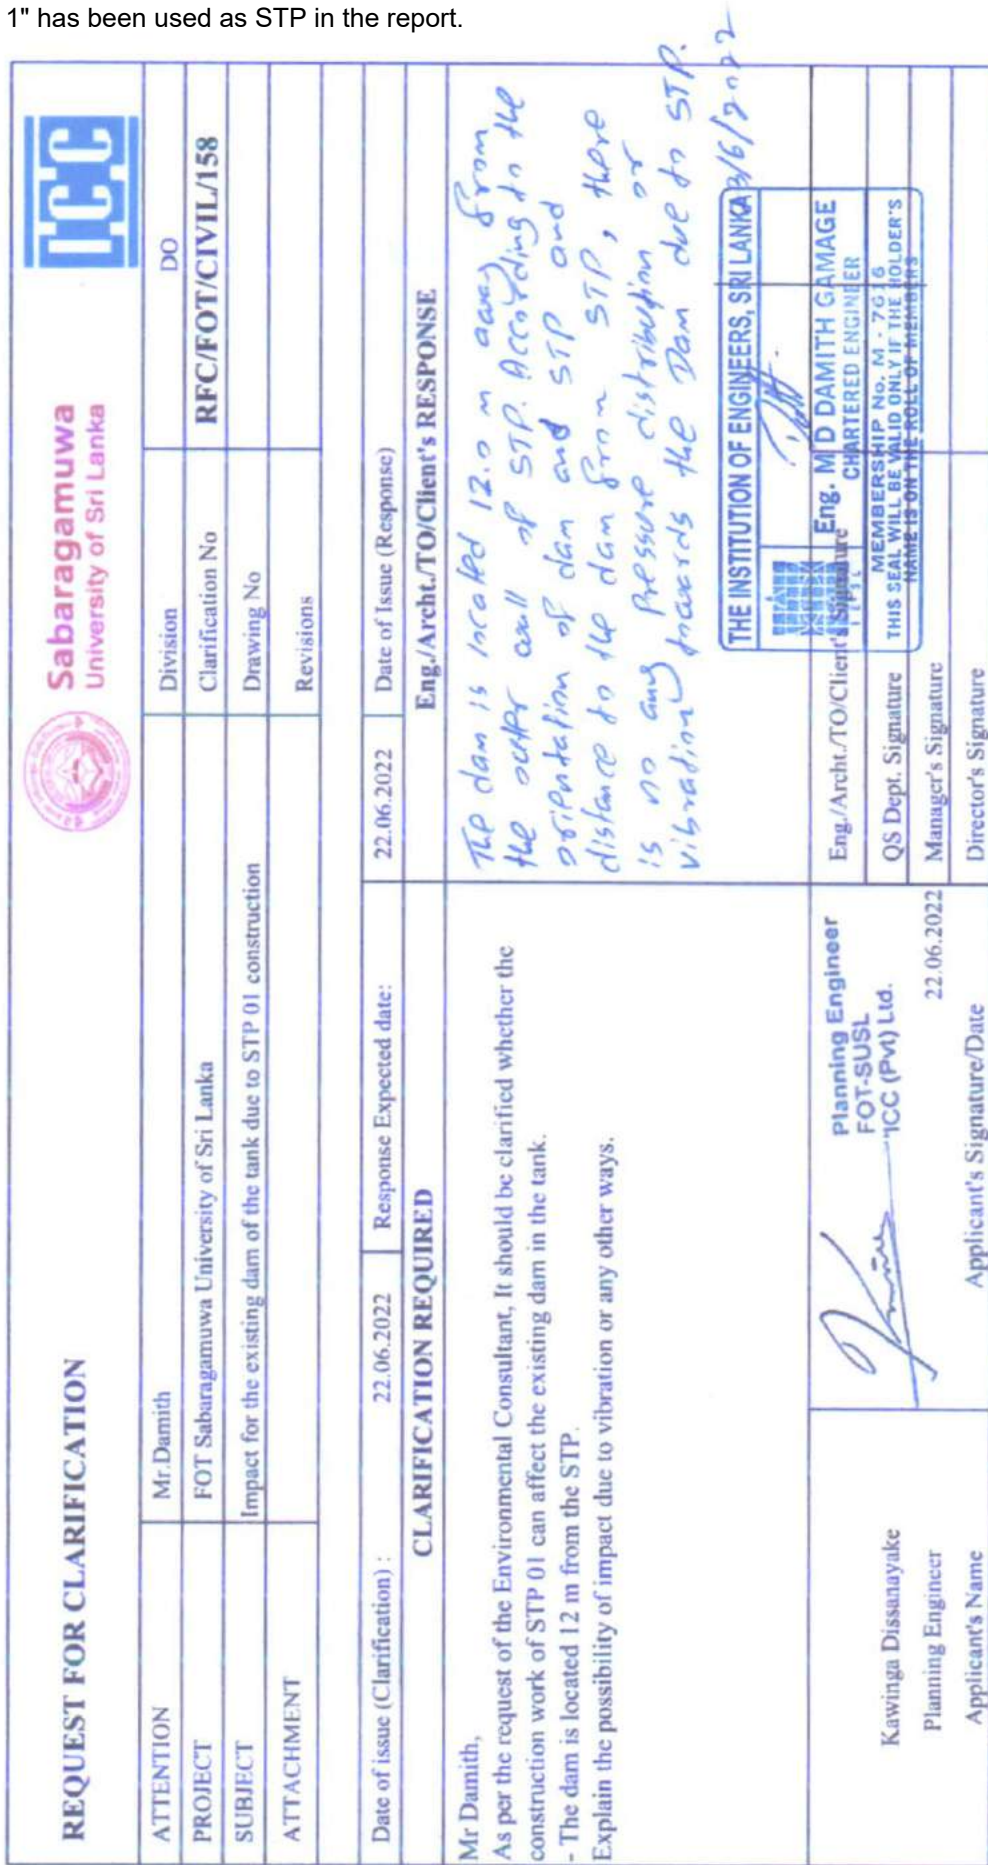 1" has been used as STP in the report.
REQUEST FOR CLARIFICATION
Sabaragamuwa
University of Sri Lanka
ICC
ATTENTION Mr.Damith Division DO
PROJECT FOT Sabaragamuwa University of Sri Lanka Clarification No RFC/FOT/CIVIL/158
SUBJECT Impact for the existing dam of the tank due to STP 01 construction Drawing No
ATTACHMENT Revisions
Date of issue (Clarification) : 22.06.2022 Response Expected date: 22.06.2022 Date of Issue (Response)
CLARIFICATION REQUIRED
Mr Damith,
As per the request of the Environmental Consultant, It should be clarified whether the
construction work of STP 01 can affect the existing dam in the tank.
- The dam is located 12 m from the STP.
Explain the possibility of impact due to vibration or any other ways.
Eng./Archt./TO/Client's RESPONSE
The dam is located 12.0 m away from
the outer wall of STP. According to the
orientation of dam and STP and
distance to the dam from STP, there
is no any pressure distribution or
vibration towards the Dam due to STP.
3/6/2022
THE INSTITUTION OF ENGINEERS, SRI LANKA
Eng. M D DAMITH GAMAGE
CHARTERED ENGINEER
MEMBERSHIP No. M - 7616
THIS SEAL WILL BE VALID ONLY IF THE HOLDER'S
NAME IS ON THE ROLL OF MEMBERS
Planning Engineer
FOT-SUSL
ICC (Pvt) Ltd.
22.06.2022
Kawinga Dissanayake
Planning Engineer
Applicant's Name
Applicant's Signature/Date
Eng./Archt./TO/Client's Signature
QS Dept. Signature
Manager's Signature
Director's Signature